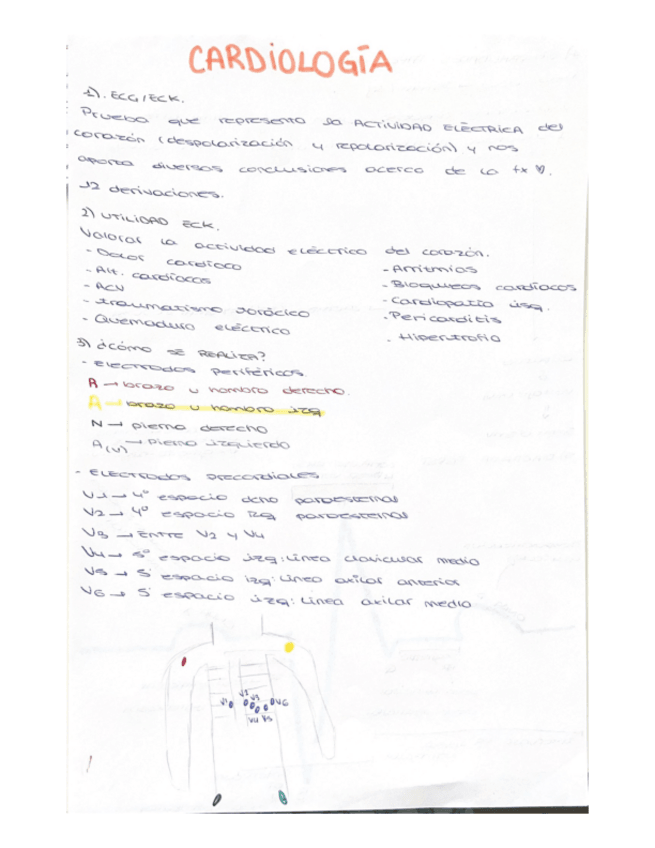 CARDIOLOGÍA
1). ECG/ECK.
Prueba que representa la ACTIVIDAD ELÉCTRICA del
corazón (despolarización y repolarización) y nos
aporta diversas conclusiones acerca de la fx ♡.
12 derivaciones.
2) UTILIDAD ECK.
Valorar la actividad eléctrica del corazón.
- Dolor cardíaco
- Alt. cardíacas
- ACV
- traumatismo torácico
- Quemadura eléctrica
- Arritmias
- Bloqueos cardíacos
- Cardiopatía isq.
- Pericarditis
. Hipertrofia
3) ¿CÓMO SE REALIZA?
- Electrodos periféricos
R → brazo u hombro derecho.
A → brazo u hombro izq
N → pierna derecha
A(V) → Pierna izquierda
- ELECTRODOS precordiales
V1 → 4º espacio dcho paraesternal
V2 → 4º espacio izq paraesternal
V3 → ENTRE V2 y V4
V4 → 5º espacio izq: línea clavicular media
V5 → 5 espacio izq: línea axilar anterior
V6 → 5 espacio izq: Línea axilar media
V1 V2 V3 V6
V4 V5